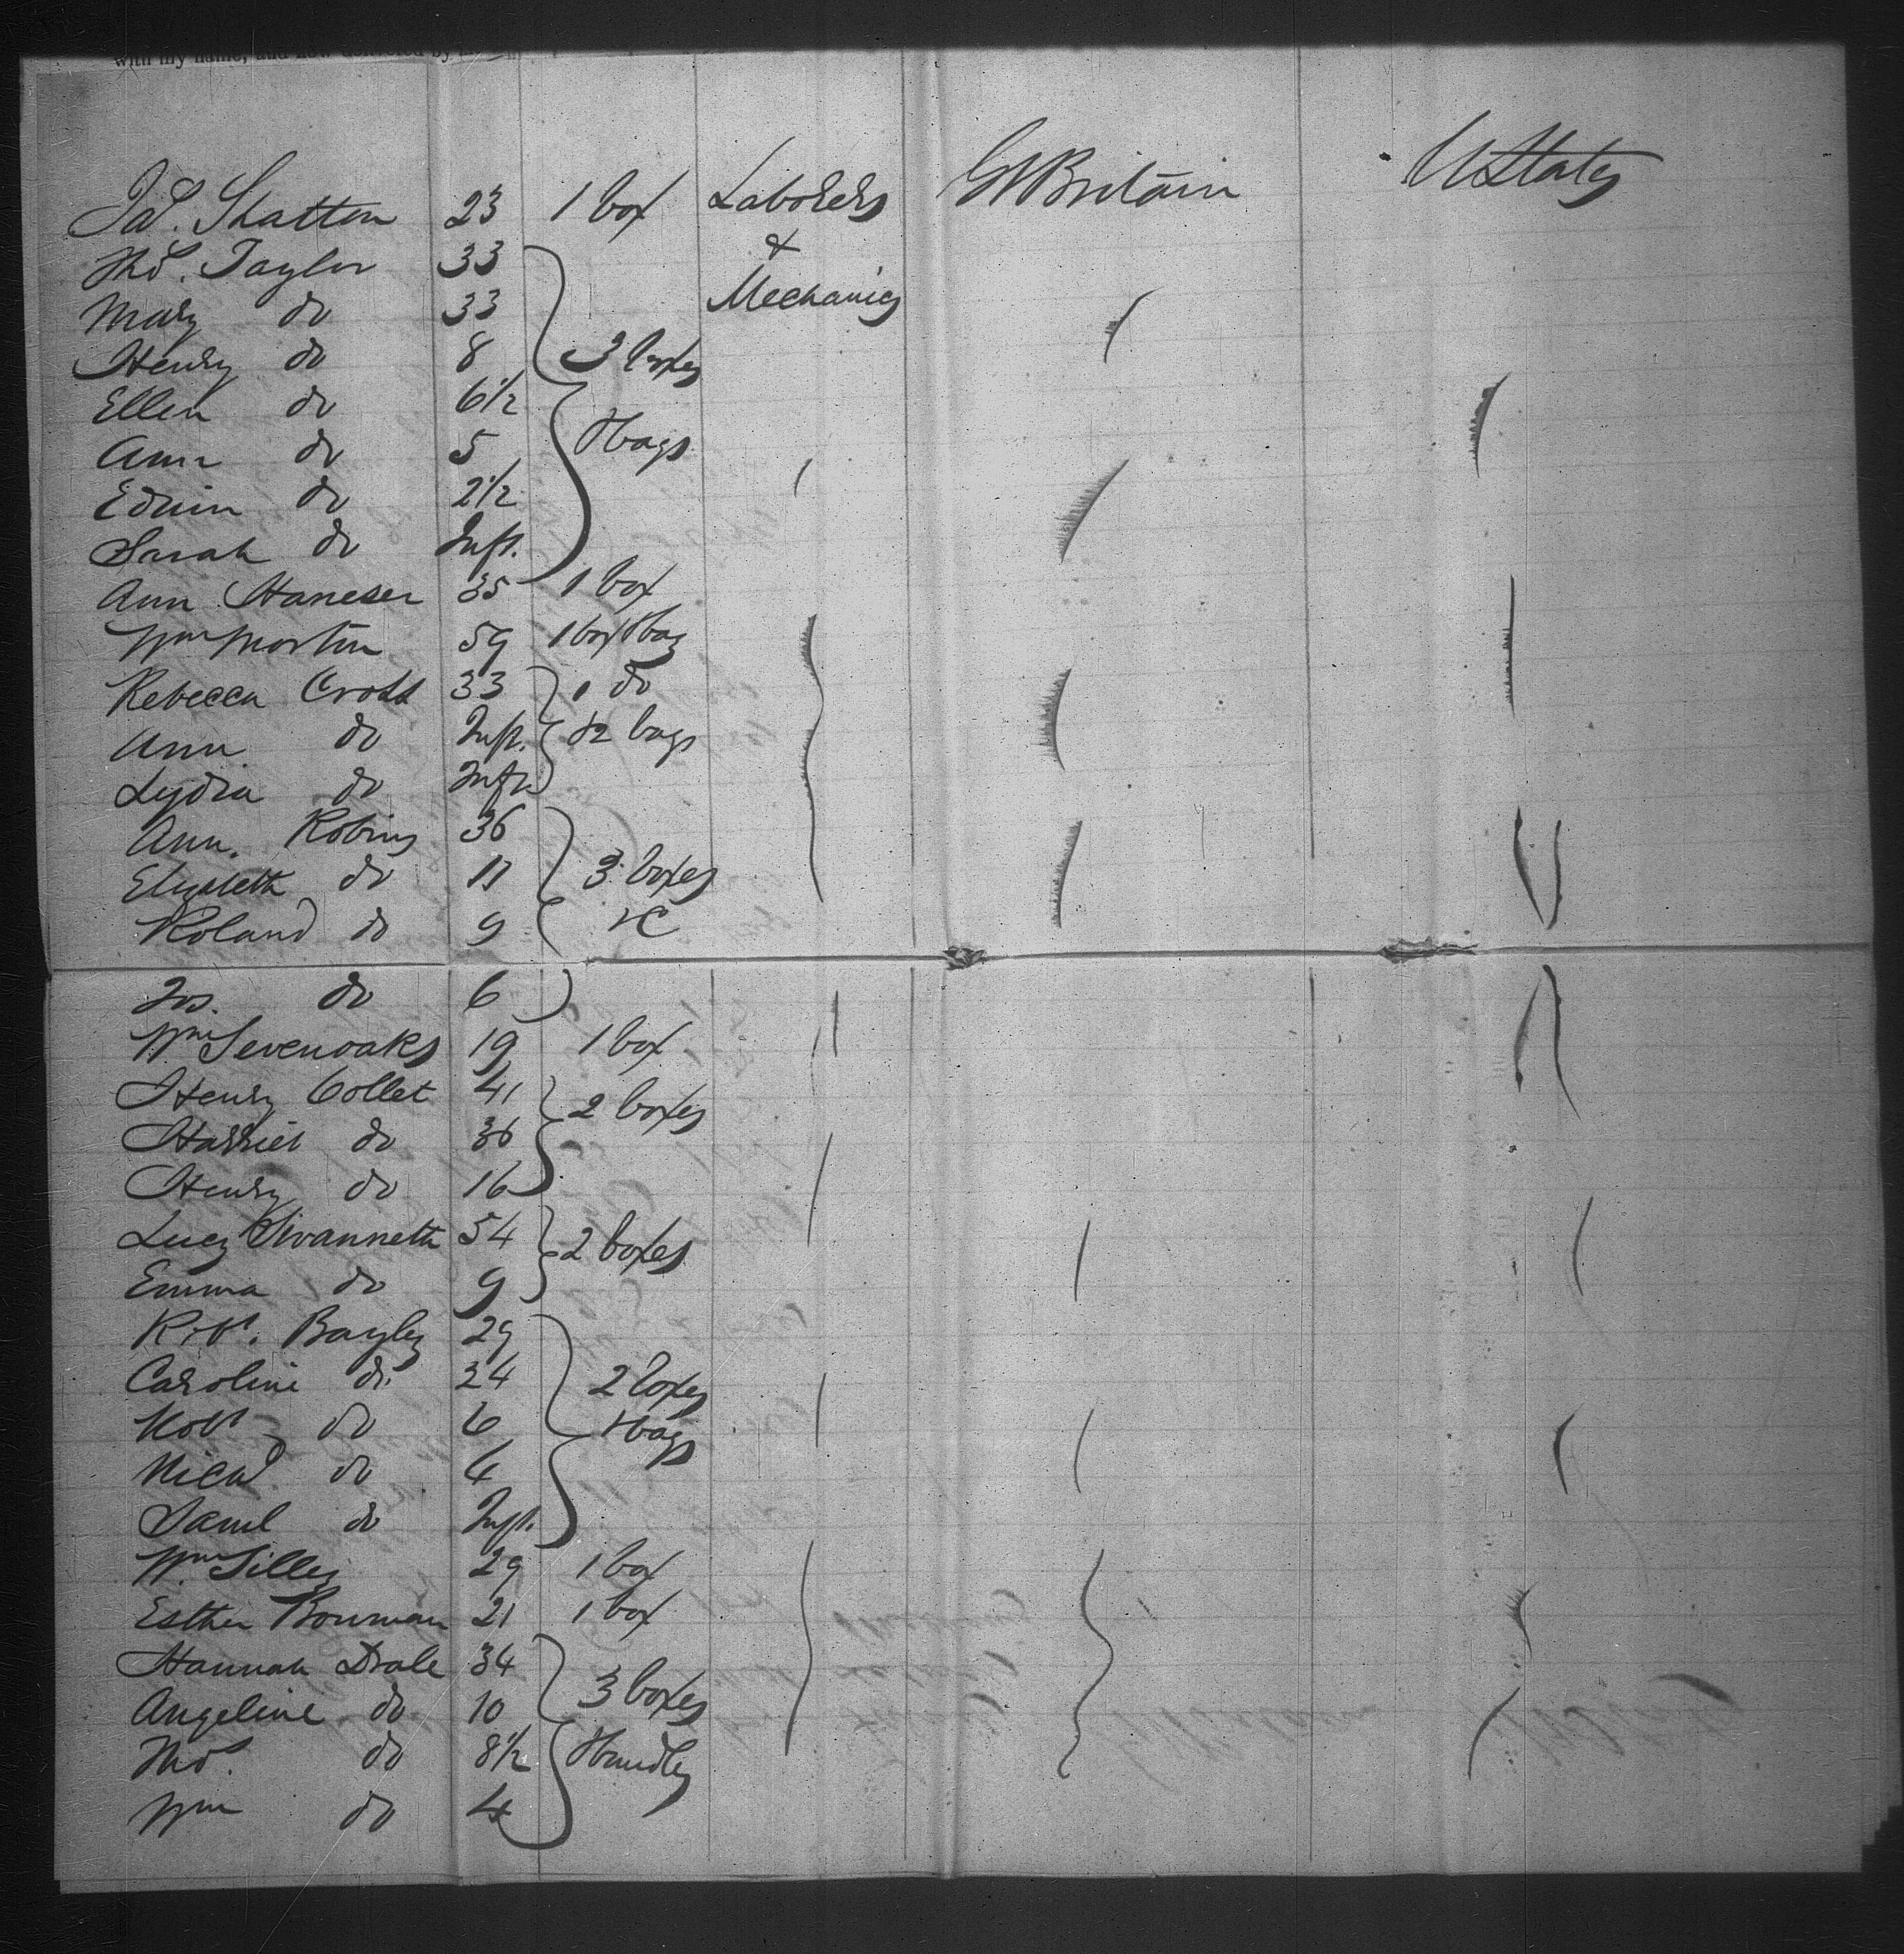 with my name, and now delivered by
Jas. Shatton 23 1 box Laborers Gt Britain U States
Thos. Taylor 33 &
Mary do 33 Mechanics
Henry do 8 3 boxes
Ellen do 6 1/2
Ann do 5 & bags
Edwin do 2 1/2
Sarah do Inft.
Ann Haneser 35 1 box
Wm Morton 59 1 box & bag
Rebecca Cross 33 1 do
Ann do Inft. & 2 bags
Lydia do Inft
Ann. Robins 36
Elizabeth do 11 3 boxes
Roland do 9 &c
Jos. do 6
Wm Sevenoaks 19 1 box
Henry Collet 41 2 boxes
Harriet do 36
Henry do 16
Lucy Swanneth 54 2 boxes
Emma do 9
Robt. Bayley 29
Caroline do 24 2 boxes
Robt do 6 & bags
do 4
Saml do Inft.
Wm Silley 29 1 box
Esther Bowman 21 1 box
Hannah Drale 34
Angeline do 10 3 boxes
Thos. do 8 1/2 & bundles
Wm do 4